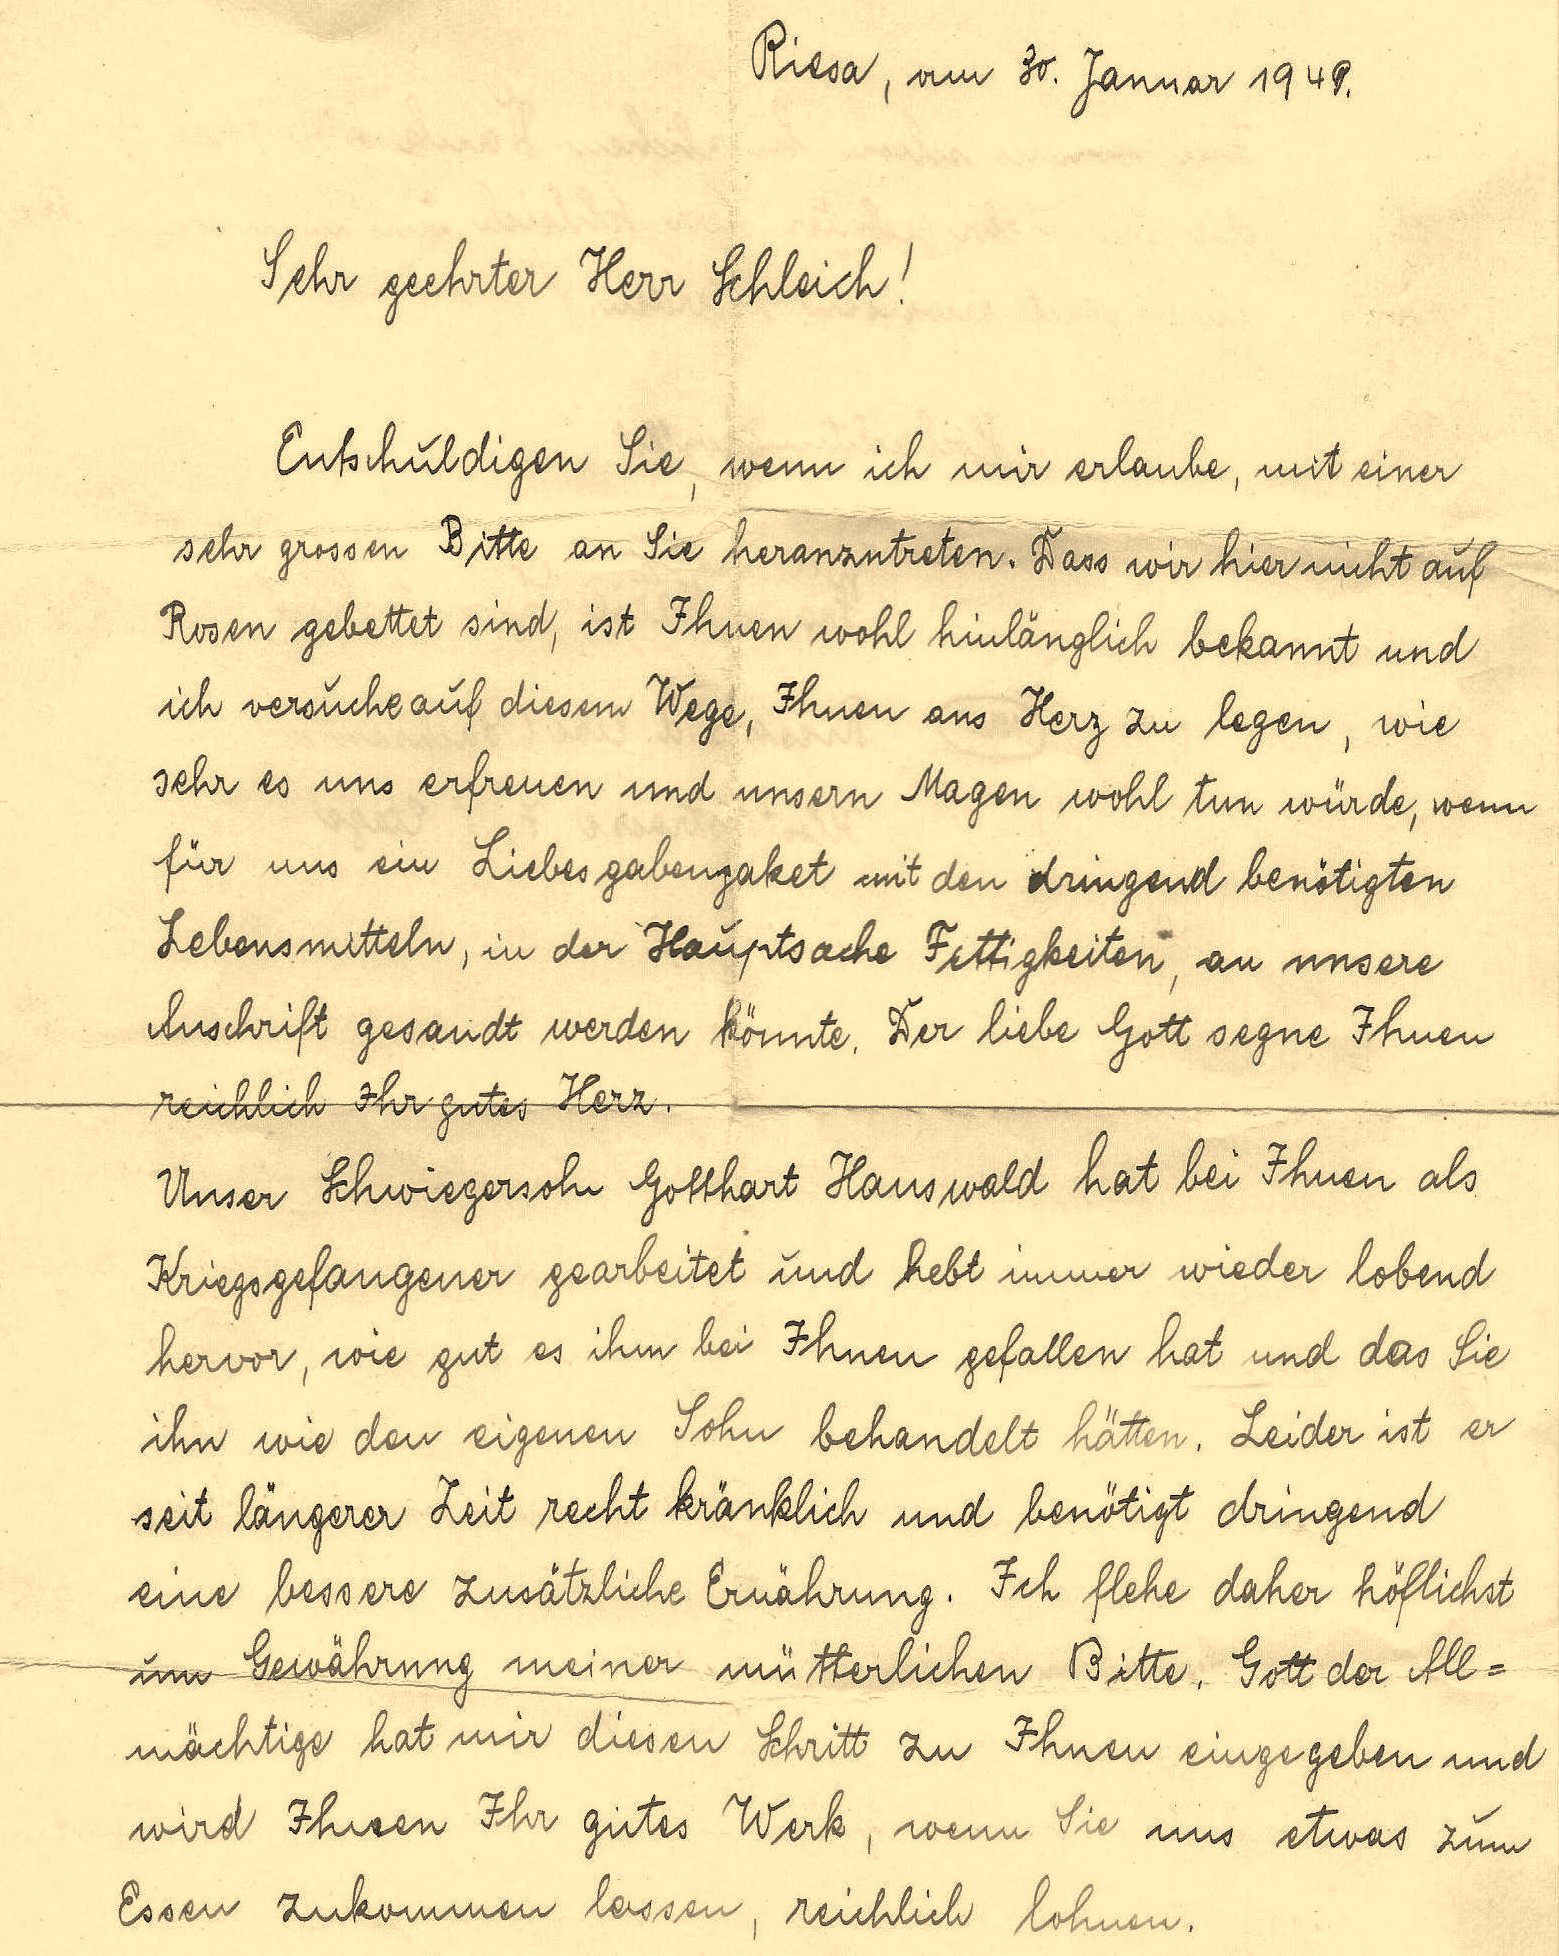 Riesa, am 30. Januar 1949.
Sehr geehrter Herr Schleich!
Entschuldigen Sie, wenn ich mir erlaube, mit einer
sehr grossen Bitte an Sie heranzutreten. Dass wir hier nicht auf
Rosen gebettet sind, ist Ihnen wohl hinlänglich bekannt und
ich versuche auf diesem Wege, Ihnen ans Herz zu legen, wie
sehr es uns erfreuen und unsern Magen wohl tun würde, wenn
für uns ein Liebesgabenpaket mit den dringend benötigten
Lebensmitteln, in der Hauptsache Fettigkeiten, an unsere
Anschrift gesandt werden könnte. Der liebe Gott segne Ihnen
reichlich Ihr gutes Herz.
Unser Schwiegersohn Gotthart Hauswald hat bei Ihnen als
Kriegsgefangener gearbeitet und hebt immer wieder lobend
hervor, wie gut es ihm bei Ihnen gefallen hat und das Sie
ihn wie den eigenen Sohn behandelt hätten. Leider ist er
seit längerer Zeit recht kränklich und benötigt dringend
eine bessere zusätzliche Ernährung. Ich flehe daher höflichst
um Gewährung meiner mütterlichen Bitte. Gott der All=
mächtige hat mir diesen Schritt zu Ihnen eingegeben und
wird Ihnen Ihr gutes Werk, wenn Sie uns etwas zum
Essen zukommen lassen, reichlich lohnen.